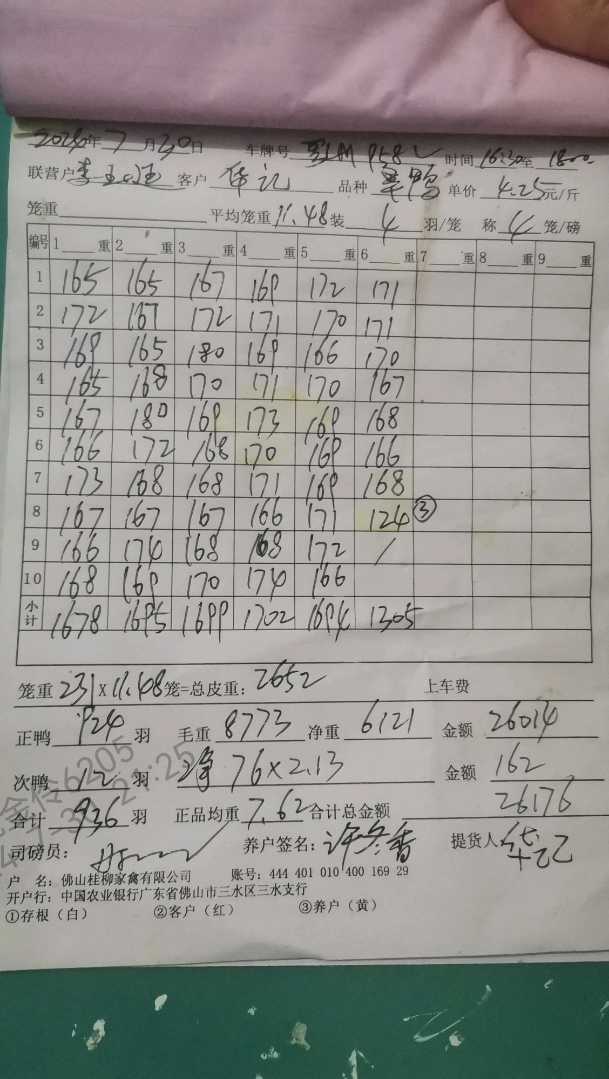 2024年7月30日 车牌号 时间 16:30至 1800
联营户 客户 华记 品种 鸭 单价 4.25元/斤
笼重 平均笼重 11.48装 4 羽/笼 称 4 笼/磅
编号 1 重 2 重 3 重 4 重 5 重 6 重 7 重 8 重 9 重
1 165 165 167 169 172 171
2 172 167 172 171 170 171
3 169 165 180 169 166 170
4 165 168 170 171 170 167
5 167 180 169 173 169 168
6 166 172 168 170 169 166
7 173 168 168 171 169 168
8 167 167 167 166 171 124 ③
9 166 174 168 168 172 /
10 168 169 170 174 166
小计 1678 1695 1699 1702 1694 1305
笼重 231 X 11.48 笼=总皮重: 2652 上车费
正鸭 924 羽 毛重 8773 净重 6121 金额 26014
次鸭 12 羽 净 76×2.13 金额 162
合计 936 羽 正品均重 7.62 合计总金额 26176
司磅员: 养户签名: 许冬香 提货人
户 名: 佛山桂柳家禽有限公司 账号: 444 401 010 400 169 29
开户行: 中国农业银行广东省佛山市三水区三水支行
①存根(白) ②客户(红) ③养户(黄)